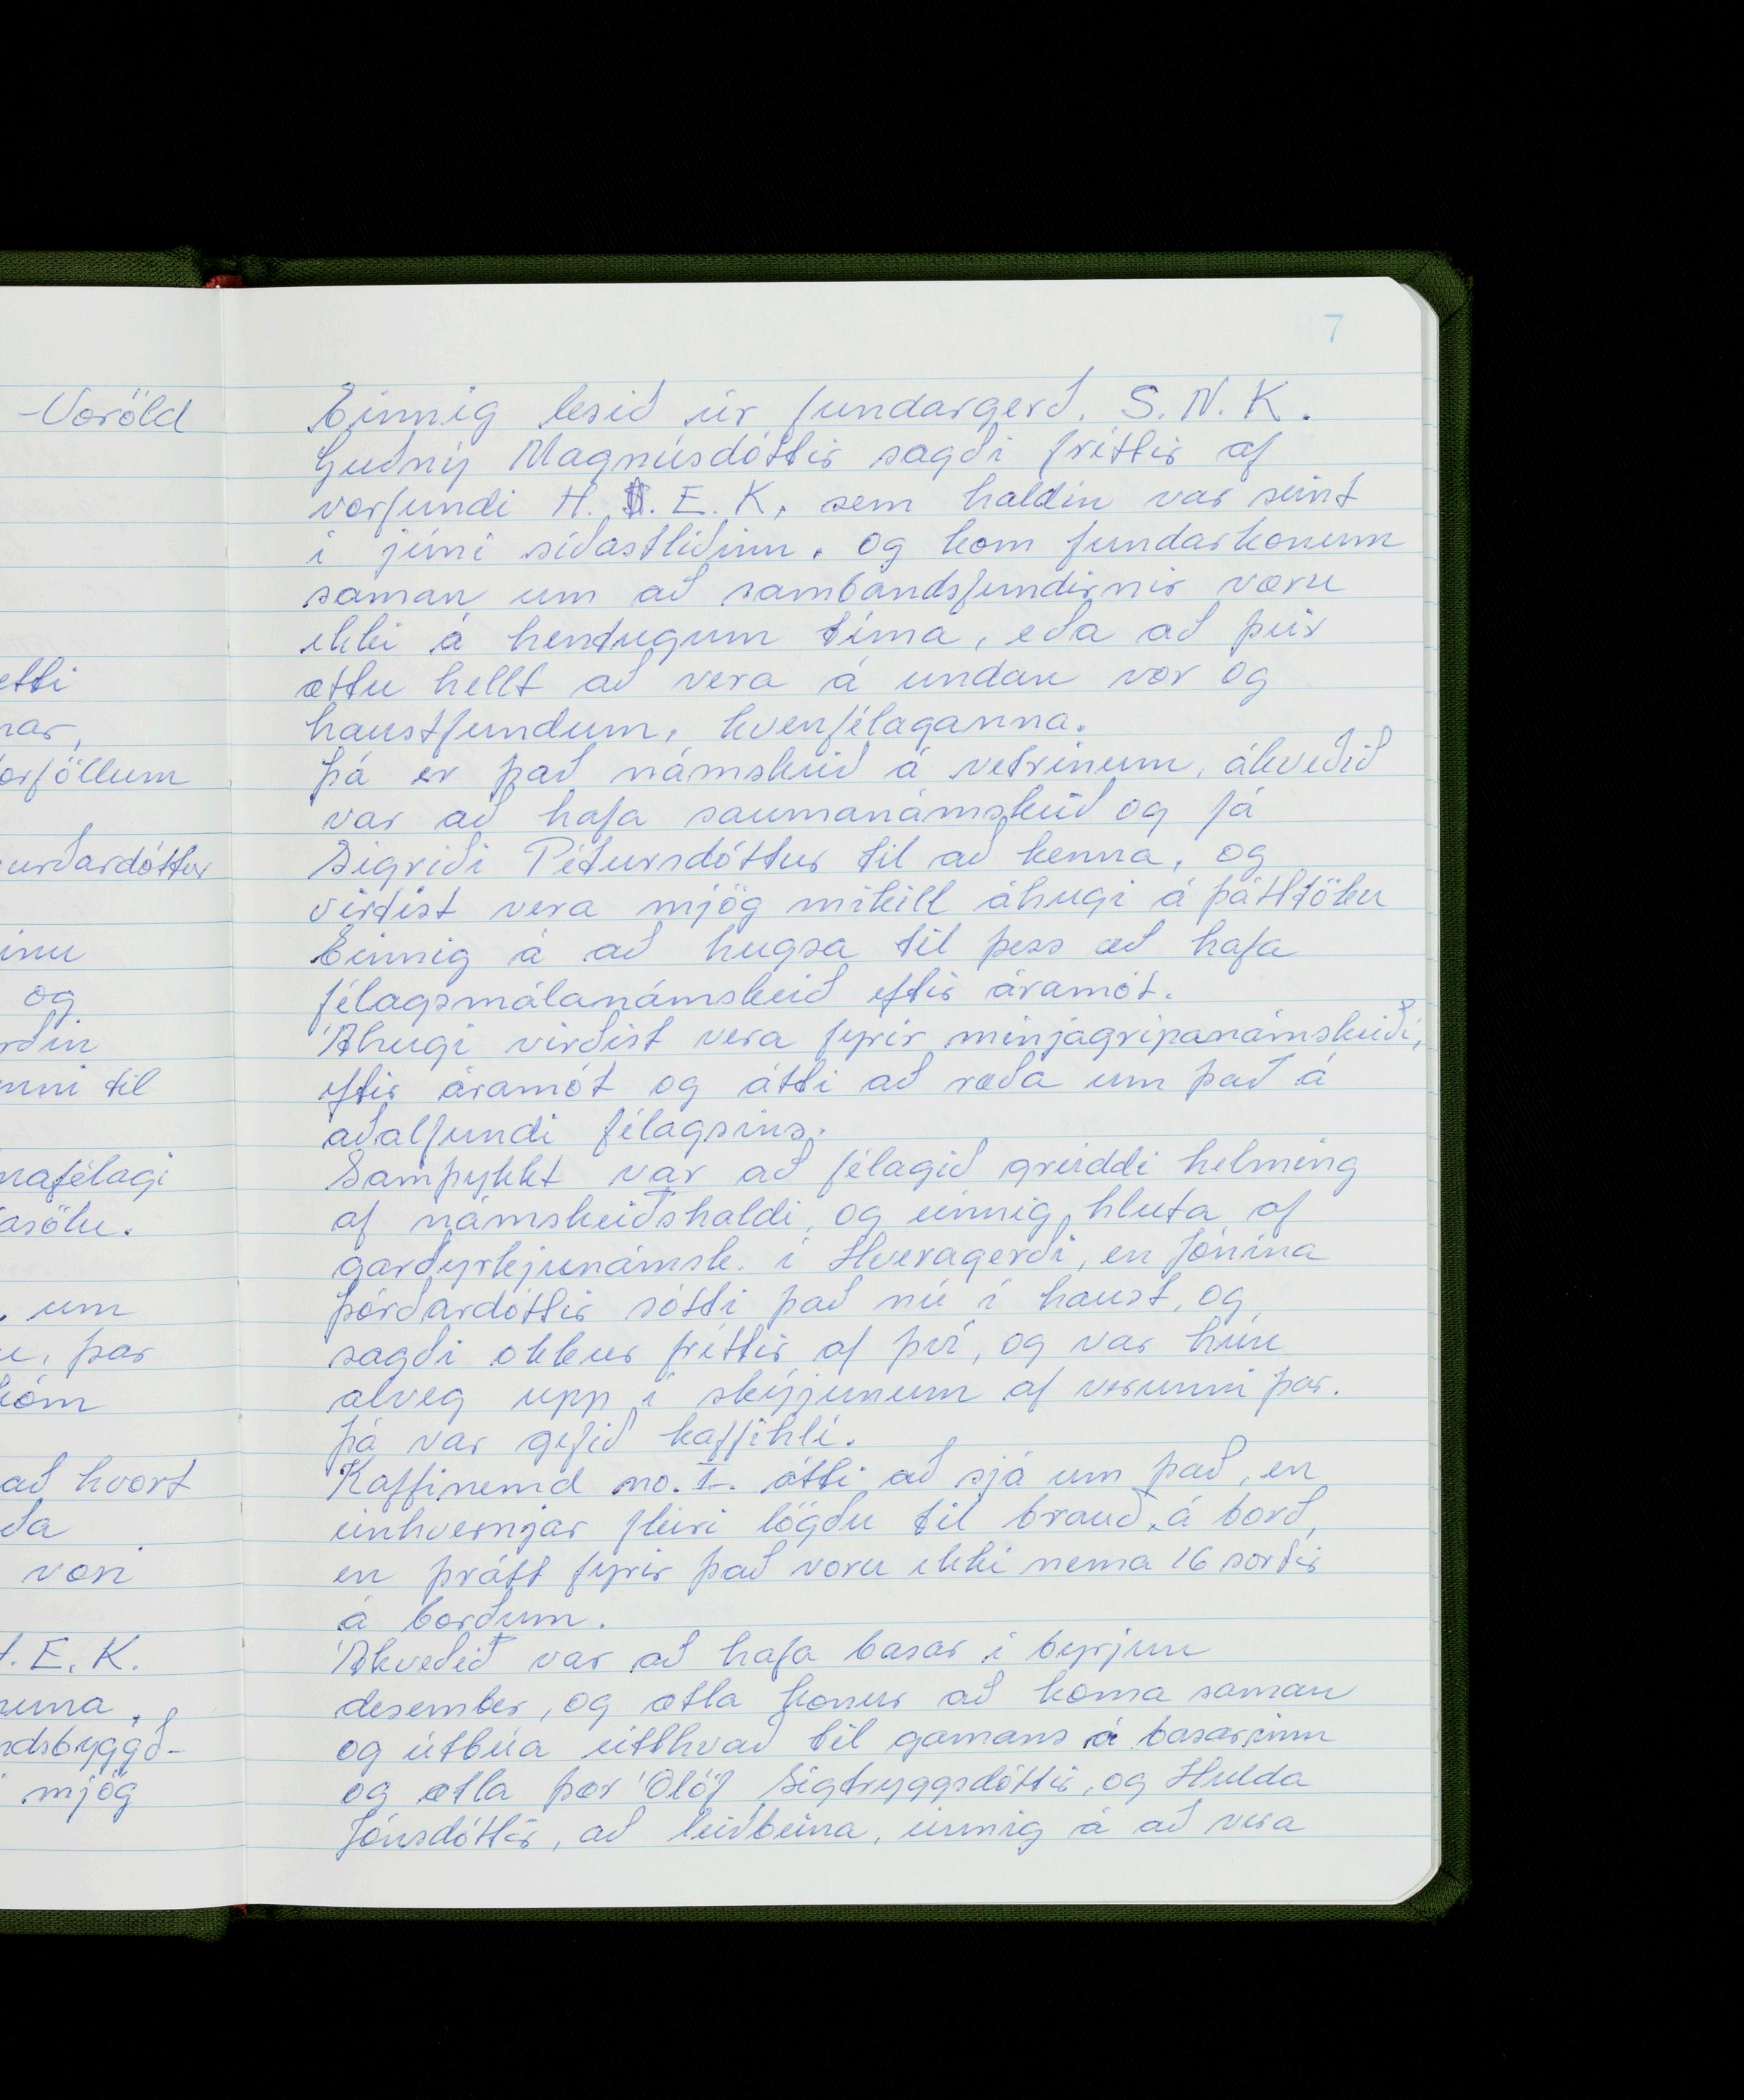 -Voröld
etti
nar,
forföllum
urðardóttur
inu
og
rðin
nni til
nafélagi
asölu.
um
þar
að hvort
ða
von
E. K.
nuna,
ndsbyggð-
mjög
7
Einnig lesið úr fundargerð. S. N. K.
Guðný Magnúsdóttir sagði fréttir af
vorfundi H. E. K. sem haldin var seint
í júní síðastliðinn. og kom fundarkonum
saman um að sambandsfundirnir væru
ekki á hentugum tíma, eða að þeir
ættu hellt að vera á undan vor og
haustfundum, kvenfélaganna.
Þá er það námskeið á vetrinum, ákveðið
var að hafa saumanámskeið og fá
Sigríði Pétursdóttur til að kenna, og
virtist vera mjög mikill áhugi á þátttöku
Einnig á að hugsa til þess að hafa
félagsmálanámskeið eftir áramót.
Áhugi virðist vera fyrir minjagripanámskeiði,
eftir áramót og átti að ræða um það á
aðalfundi félagsins.
Samþykkt var að félagið greiddi helming
af námskeiðshaldi, og einnig hluta af
garðyrkjunámsk. í Hveragerði, en Jónína
Þórðardóttir sótti það nú í haust, og
sagði okkur fréttir af því, og var hún
alveg upp í skýjunum af verunni þar.
Þá var gefið kaffihlé.
Kaffinemd no. I. átti að sjá um það, en
einhvernjar fleiri lögðu til brauð á borð,
en þrátt fyrir það voru ekki nema 16 sortir
á borðum.
Ákveðið var að hafa basar í byrjun
desember, og ætla konur að koma saman
og útbúa eitthvað til gamans á basarinn
og ætla þær Ólöf Sigtryggsdóttir, og Hulda
Jónsdóttir, að leiðbeina, einnig á að vera